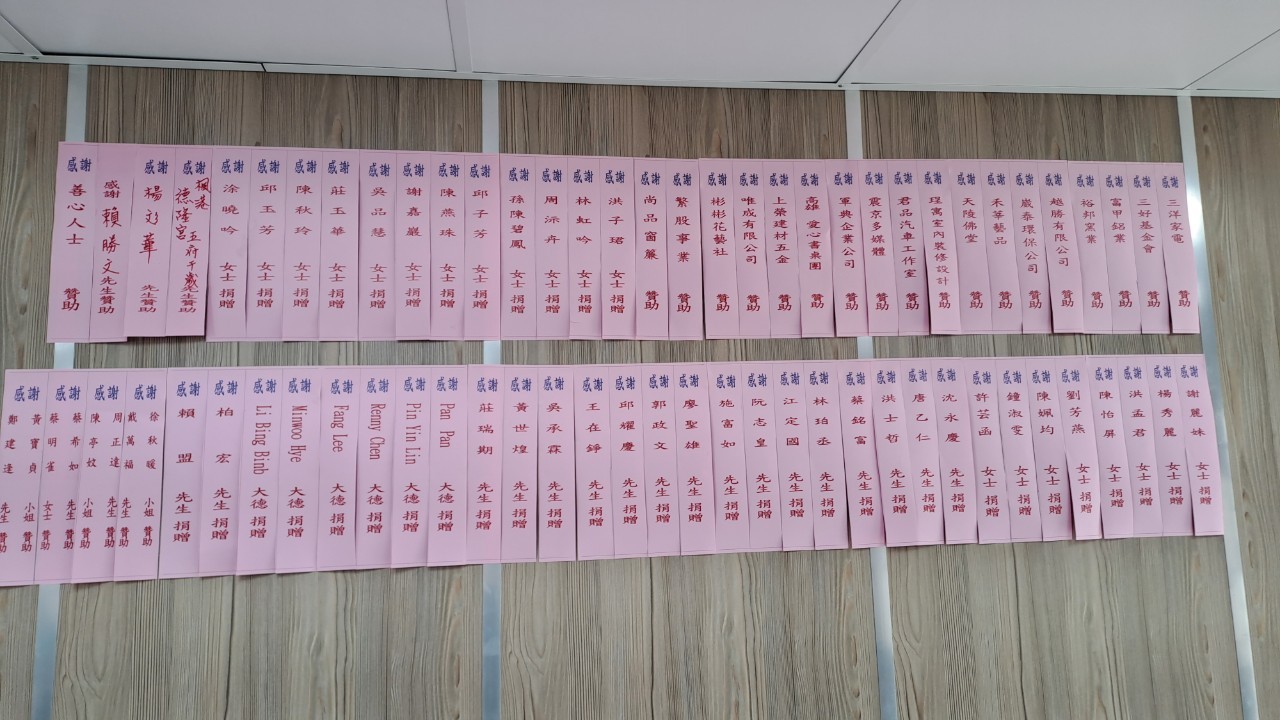 感謝 三洋家電 贊助
感謝 三好基金會 贊助
感謝 富甲鋁業 贊助
感謝 裕邦窯業 贊助
感謝 越勝有限公司 贊助
感謝 嚴泰環保公司 贊助
感謝 禾華藝品 贊助
感謝 天陵佛堂 贊助
感謝 理寓室內裝修設計 贊助
感謝 君品汽車工作室 贊助
感謝 震京多媒體 贊助
感謝 軍興企業公司 贊助
感謝 高雄 愛心書桌團 贊助
感謝 上榮建材五金 贊助
感謝 唯成有限公司 贊助
感謝 彬彬花藝社 贊助
感謝 繁殷事業 贊助
感謝 尚品窗簾 贊助
感謝 洪子珺 女士 捐贈
感謝 林虹吟 女士 捐贈
感謝 周沶卉 女士 捐贈
感謝 孫陳碧鳳 女士 捐贈
感謝 邱子芳 女士 捐贈
感謝 陳燕珠 女士 捐贈
感謝 謝嘉巖 女士 捐贈
感謝 吳品慧 女士 捐贈
感謝 莊玉華 女士 捐贈
感謝 陳秋玲 女士 捐贈
感謝 邱玉芳 女士 捐贈
感謝 涂曉吟 女士 捐贈
感謝 德隆宮 五府千歲 先生贊助
感謝 楊 華 先生贊助
感謝 賴勝文先生贊助
感謝 善心人士 贊助
感謝 謝麗妹 女士 捐贈
感謝 楊秀麗 女士 捐贈
感謝 洪孟君 女士 捐贈
感謝 陳怡屏 女士 捐贈
感謝 劉芳燕 女士 捐贈
感謝 陳姵均 女士 捐贈
感謝 鐘淑雯 女士 捐贈
感謝 許芸函 女士 捐贈
感謝 沈永慶 先生 捐贈
感謝 唐乙仁 先生 捐贈
感謝 洪士哲 先生 捐贈
感謝 蔡銘富 先生 捐贈
感謝 林珀丞 先生 捐贈
感謝 江定國 先生 捐贈
感謝 阮志皇 先生 捐贈
感謝 施富如 先生 捐贈
感謝 廖聖雄 先生 捐贈
感謝 郭政文 先生 捐贈
感謝 邱耀慶 先生 捐贈
感謝 王在錚 先生 捐贈
感謝 吳承霖 先生 捐贈
感謝 黃世煌 先生 捐贈
感謝 莊瑞期 先生 捐贈
感謝 Pan Pan 大德 捐贈
感謝 Pin Yin Lin 大德 捐贈
感謝 Renny Chen 大德 捐贈
感謝 Fang Lee 大德 捐贈
感謝 Minwoo Hye 大德 捐贈
感謝 Li Bing Binb 大德 捐贈
感謝 柏宏 先生 捐贈
感謝 賴盟 先生 捐贈
感謝
徐秋暖 小姐 贊助
戴萬福 先生 贊助
感謝
周正達 先生 贊助
陳亭妏 小姐 贊助
感謝
蔡希如 先生 贊助
蔡明雀 女士 贊助
感謝
黃寶貞 小姐 贊助
鄭建逢 先生 贊助